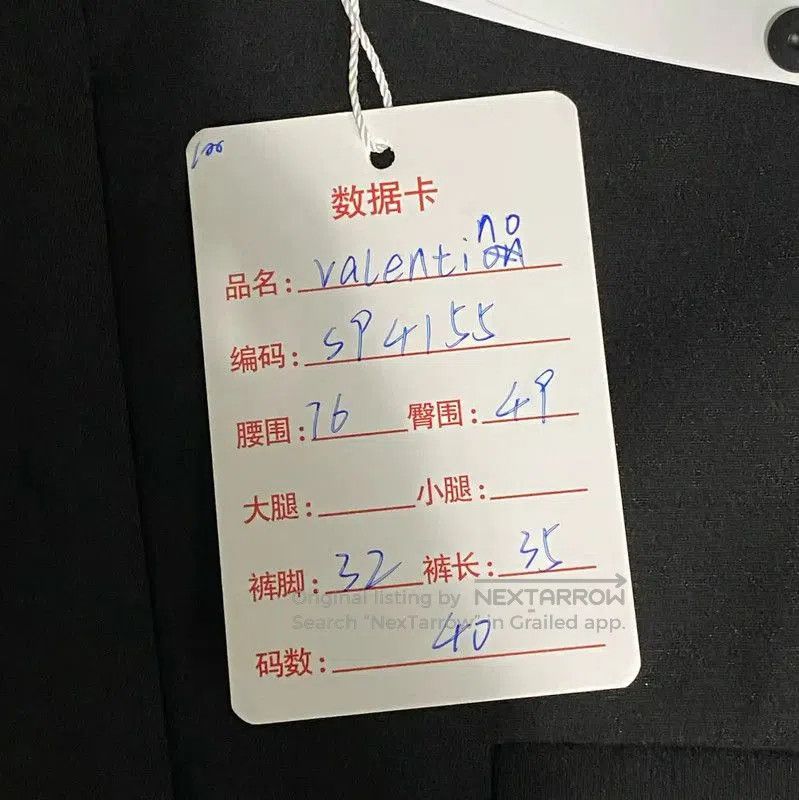 数据卡
品名：valentino
编码：SP4155
腰围：76 臀围：49
大腿： 小腿：
裤脚：32 裤长：35
Original listing by NEXTARROW
Search "NexTarrow" in Grailed app.
码数：40